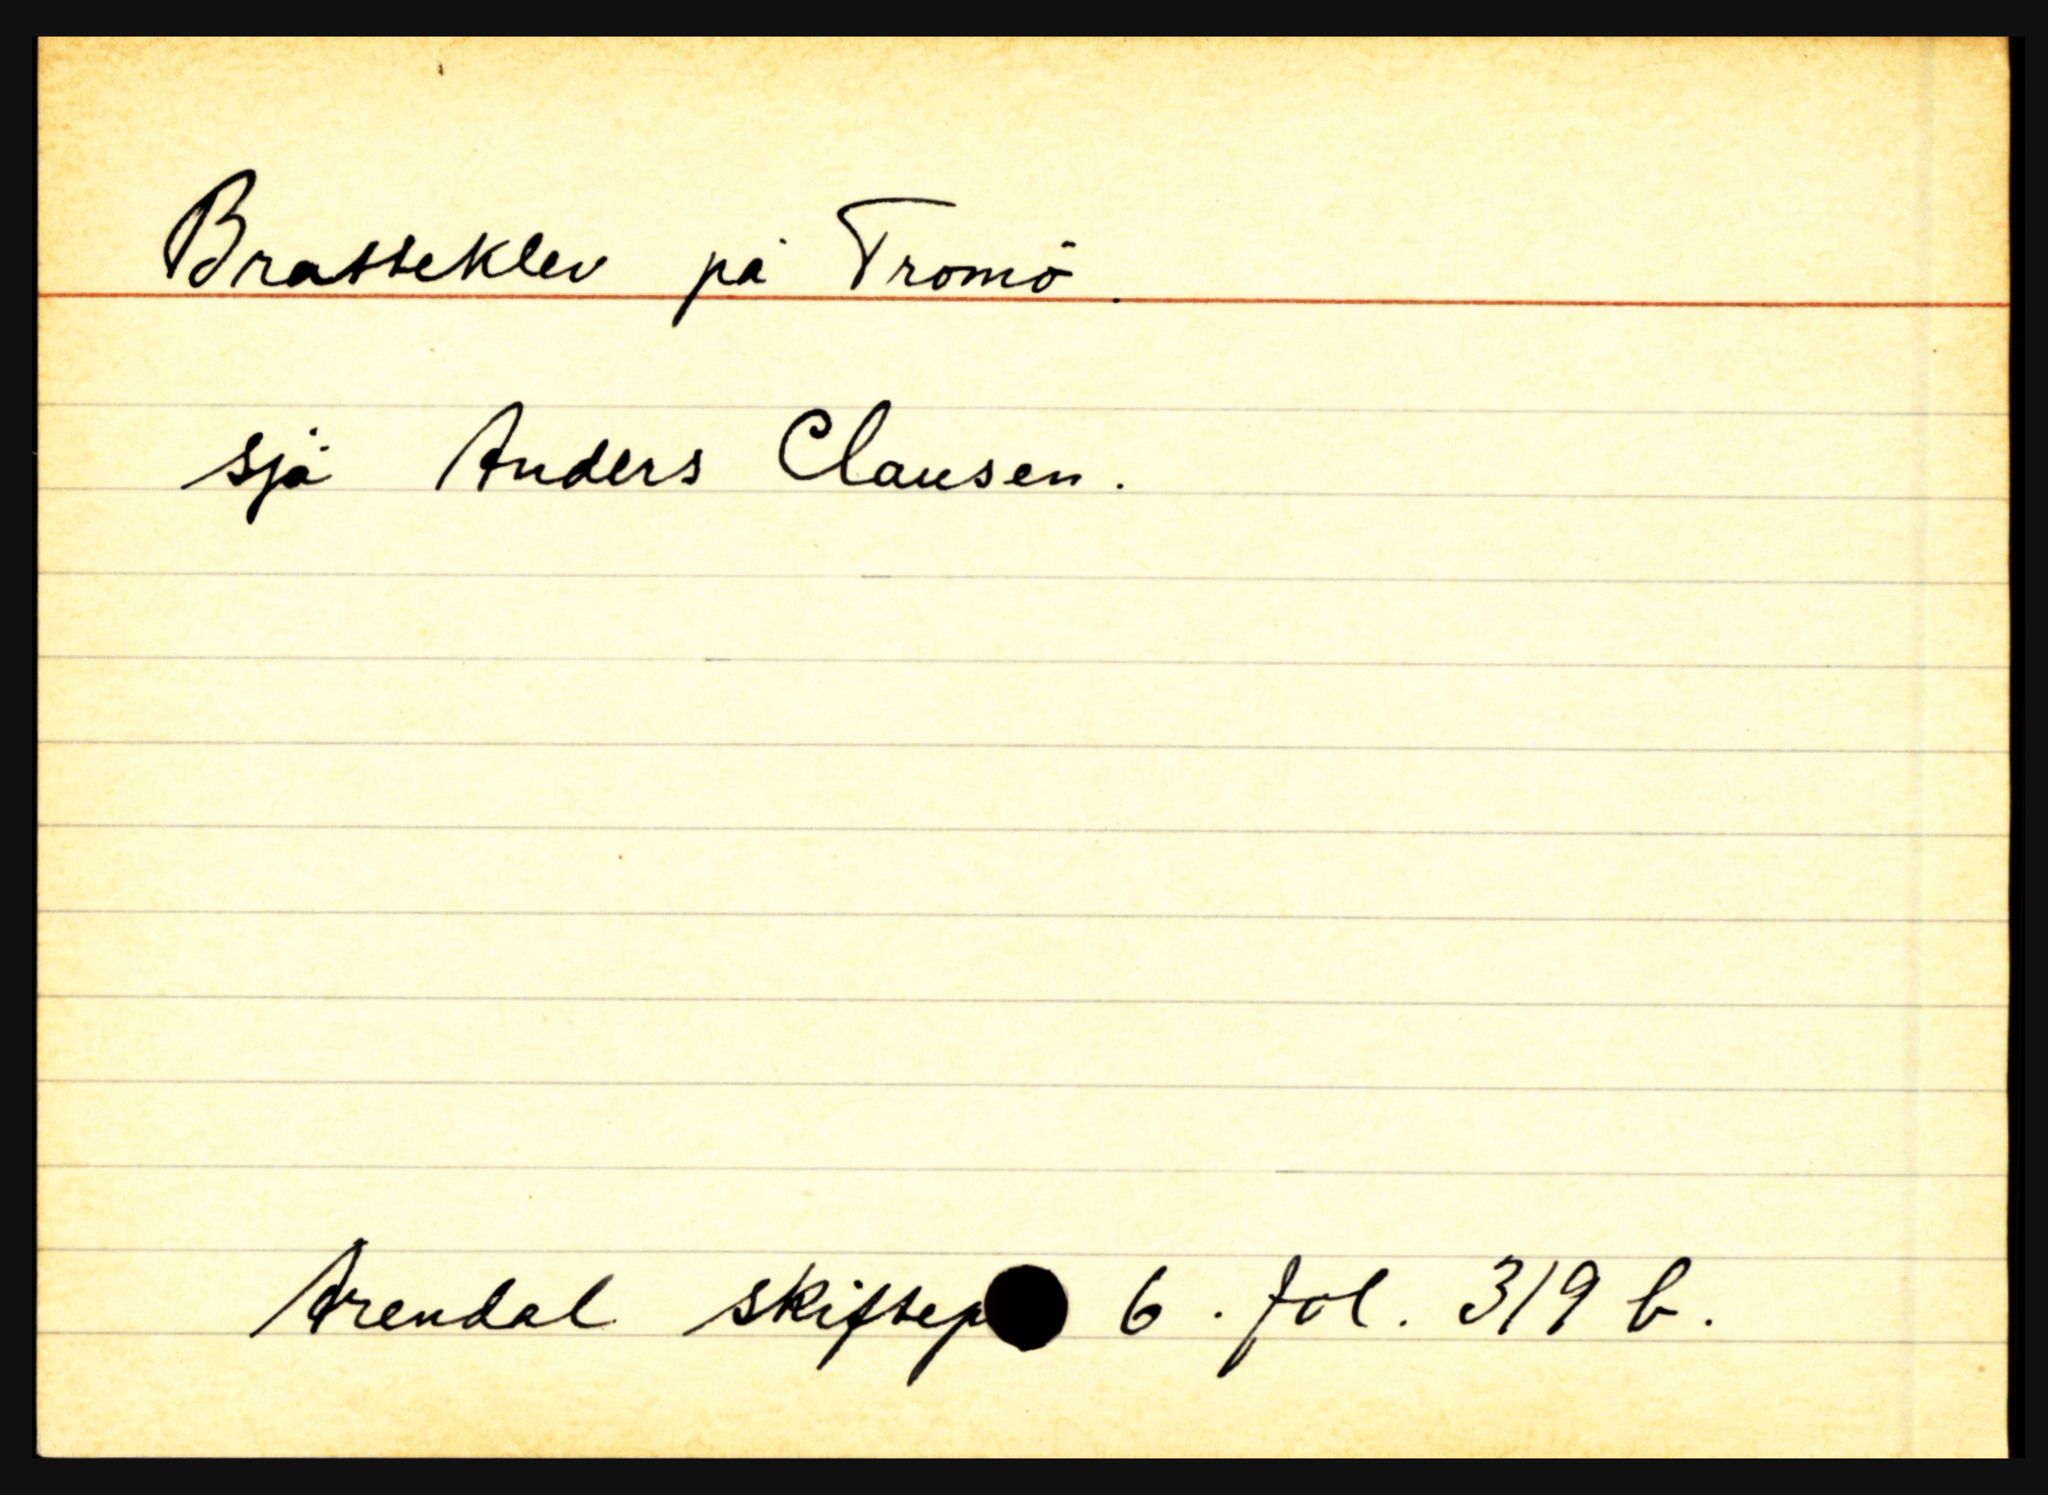 Bratteklev på Tromö.
sjå Anders Clausen.
Arendal skiftep 6. fol. 319 b.